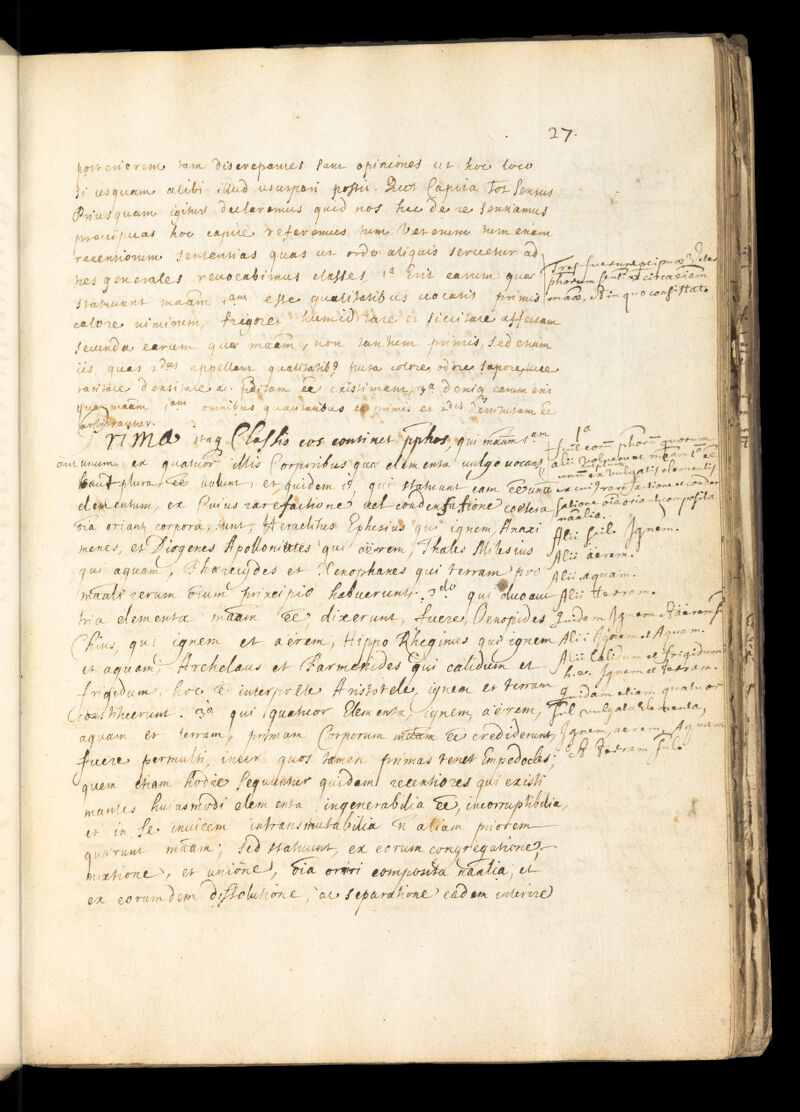 27.
posteriorem tam discrepantes sunt opiniones ut hoc loco
si usquam alibi illud usurpari possit. Quot Capita Tot Sensus
Priusquam igitur declaremus quid nos hac de re sentiamus
praecipuas hoc capite referemus tum veterum tum etiam
recentiorum sententias quas ut ordo aliquis servetur ad
tres generales revocabimus classes 1a Erit earum quae
statuunt maam 1am esse qualitatibus vocatis primis
calore nimirum, frigore humiditate et siccitate affectam
secunda earum quae maam, non tantum primis, sed etiam
iis quas 2das appellant qualitatib9 puta colore odore sapore luce
raritate densitate a. peditam ee existimant, 3a deniq earum erit
quae maam 1am omnibus qualitatibus et primis et 2dis destitutam ee
arbitrantur.
Prima itaq Classis eos continet pphos, qui maam 1am
aut unum ex quatuor illis Corporibus quae elementa vulgo vocant
aut plura ee volunt, et quidem 1o, qui statuunt eam ee unum
elementum, ex cuius rarefactione vel condensatione coetera
oia oriantur corpora, sunt, Heraclitus Ephesius qui ignem Anaxi
menes, et Diogenes Apolloniates qui aërem, Thales Milesius
qui aquam, Pherecydes et Xenophanes qui terram pro
maali rerum oium principio habuerunt. 2do qui duo aut
tria elementa maam ee dixerunt, fuere, Oenopides
Chius, qui ignem et aërem, Hippo Rheginus qui ignem
et aquam, Archelaus et Parmenides qui calidum et
frigidum, hoc e interprete Aristotele, ignem et terram
constituerunt. 3o qui quatuor Elementa, ignem, aërem,
aquam et terram, primam Corporum maam ee crediderunt,
fuere permulti, inter quos tamen primas tenet Empedocles;
quem etiam hodie sequuntur quidam recentiores qui existi
mantes huiusmodi elementa ingenerabilia ee, incorruptibilia,
et in se invicem intransmutabilia n aliam priorem
quaerunt maam; sed statuunt, ex eorum congregatione,
mixtione, et unione, oia oriri composita naalia, et
ex eorumdem dissolutione, ac separatione eadem interire
Tres fuerunt praecipuae 3 clas
phorum circa eiam
maae, et in quo consistat
1a
fuit eorum phorum quorum
alii voluerunt maam 1am ee
unum ex vulgatis elementis
ex cuius rarefactione et conden
satione oia oriantur composita
naalia.
Alii scil. Ignem.
Alii äerem.
Alii aquam.
Alii Terram.
quidam Ignem et äerem
Alii Ignem et Aquam.
Alii Calidum et frigidum
h.e. Ignem et terram.
quidam etiam quatuor
vulgata Elementa,
Ignem, aerem, Aquam
et Terram scil.